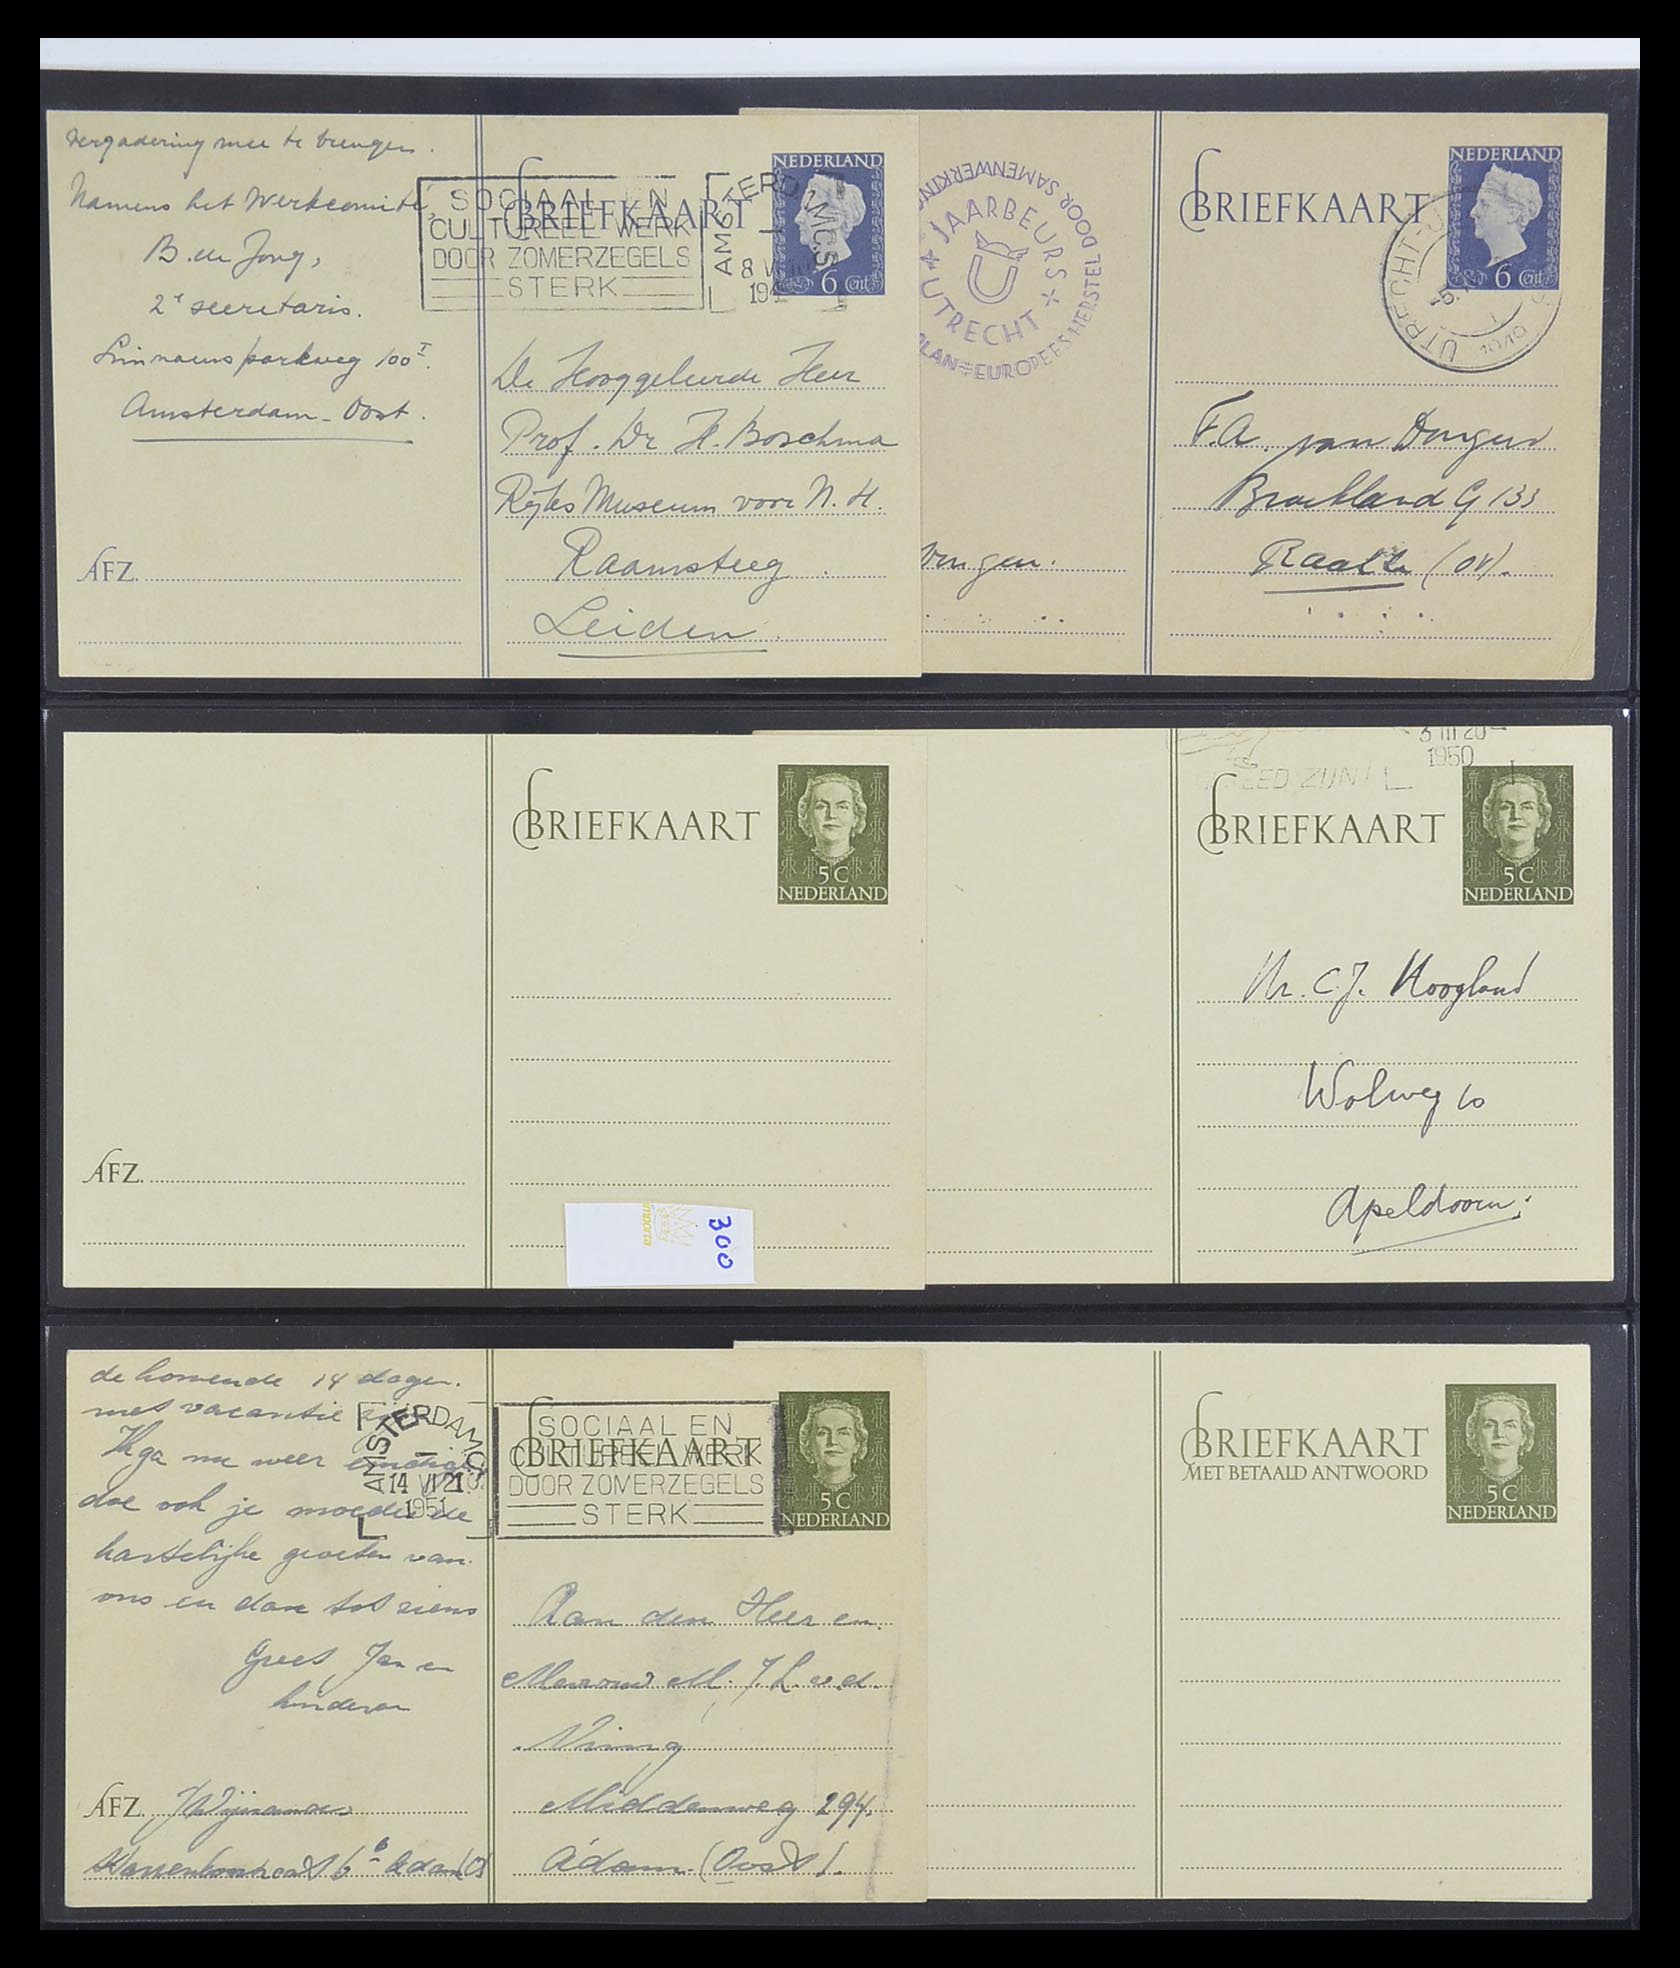 vergadering mee te brengen.
Namens het Werkcomité,
B. de Jong,
2e secretaris.
Linnaeusparkweg 100 I.
Amsterdam-Oost.
AFZ.
SOCIAAL EN
CULTUREEL WERK
DOOR ZOMERZEGELS
STERK
AMSTERDAM C.S.
8 VI
19
BRIEFKAART
NEDERLAND
6 Cent
De Hooggeleerde Heer
Prof. Dr H. Boschma
Rijks Museum voor N. H.
Raamsteeg
Leiden
DOOR SAMENWERKING
PLAN = EUROPEES HERSTEL
JAARBEURS
UTRECHT
BRIEFKAART
NEDERLAND
6 Cent
UTRECHT
F.A. van Dongen
Broekland G 133
Raalte (OV).
ongen.
BRIEFKAART
5 C
NEDERLAND
AFZ.
300
3 III 20
1950
EED ZIJN!
BRIEFKAART
5 C
NEDERLAND
Mr. C.J. Hoogland
Wolweg 10
Apeldoorn.
de komende 14 dagen.
met vacantie
Ik ga nu weer
doe ook je moeder de
hartelijke groeten van
ons en dan tot ziens
Greet Jan en
kinderen
AFZ.
AMSTERDAM C.S.
14 VI 21
1951
SOCIAAL EN
CULTUREEL WERK
DOOR ZOMERZEGELS
STERK
BRIEFKAART
5 C
NEDERLAND
Aan den Heer en
Mevrouw M. J. L. v.d.
Middenweg 294.
A'dam. (Oost).
BRIEFKAART
MET BETAALD ANTWOORD
5 C
NEDERLAND